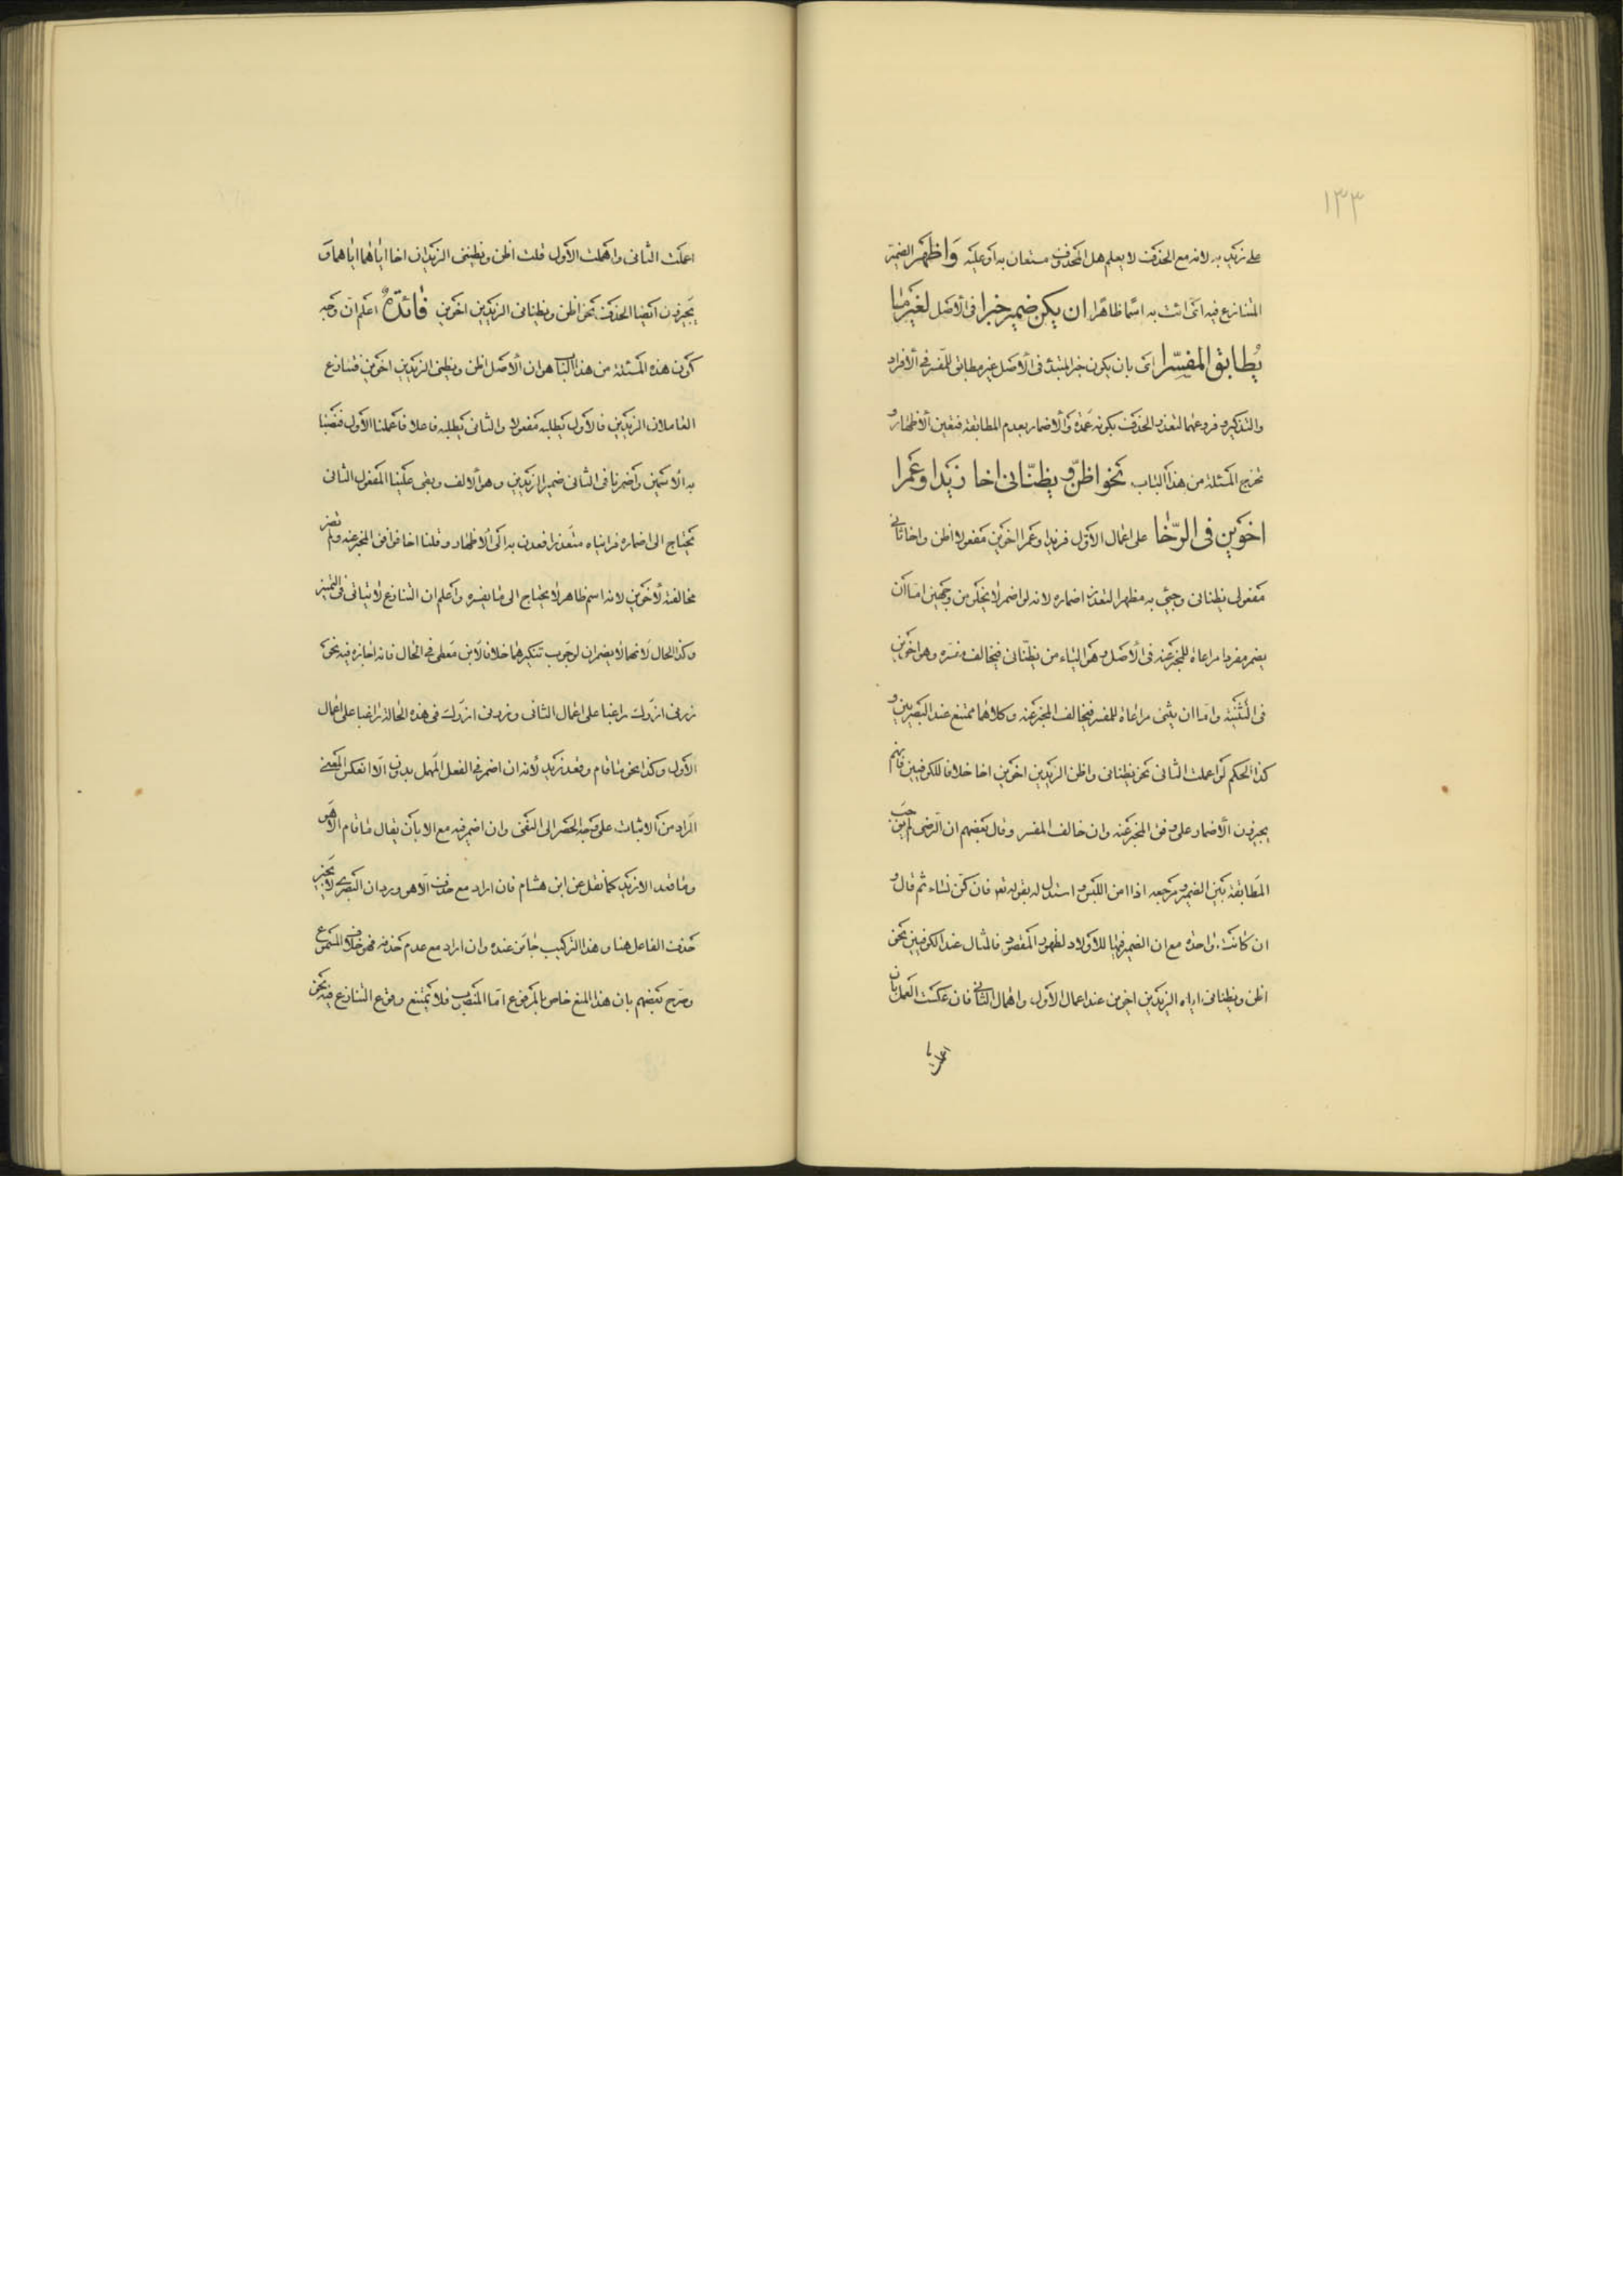 ١٣٣
على زيد به لانه مع الحذف لا يعلم هل المحذوف مستعان به او عليه وَاظهر الضمير
المتنازع فيه اى ائت به اسما ظاهرا ان يكن ضمير خبرا فى الأصل لغير ما
يُطابق المفسّرا اى بان يكون خبر المبتدء فى الأصل غير مطابق للمفسر فى الأفراد
والتذكير و فروعهما لتعذر الحذف بكونه عمدة والأضمار بعدم المطابقة فتعين الأظهار و
تخرج المسئلة من هذا الباب نحو اظنّ و يظنّانى اخا زيدا وعمرا
اخوين فى الرّخا على اعمال الأوّل فزيدا وعمرا اخوين مفعولا اظن واخا ثانى
مفعولى يظنانى وجئ به مظهرا لتعذر اضماره لانه لو اضمر لا يخلو من وجهين اما ان
يضمر مفردا مراعاة للمخبر عنه فى الأصل و هو الياء من يظنّانى فيخالف مفسره وهو اخوين
فى التثنية واما ان يثنى مراعاة للمفسر فيخالف المخبر عنه وكلاهما ممتنع عند البصريين و
كذا الحكم لو اعملت الثانى نحو يظنانى واظن الزيدين اخوين اخا خلافا للكوفيين فانهم
يجيزون الأضمار على وفق المخبر عنه وان خالف المفسر وقال بعضهم ان الرضى لم يوجب
المطابقة بين الضمير و مرجعه اذا امن اللبس و استدل له بقوله تعو فان كنّ نساء ثم قال و
ان كانت واحدة مع ان الضمير فيها للأولاد لظهور المقصود فالمثال عند الكوفيين نحو
اظن ويظنانى اياه الزيدين اخوين عند اعمال الأول واهمال الثانى فان عكست العمل بان
اعملت
اعملت الثانى واهملت الأول قلت اظن ويظننى الزيدان اخا اياهما اياهما و
يجيزون ايضا الحذف نحو اظن ويظنانى الزيدين اخوين فائدة اعلم ان وجه
كون هذه المسئلة من هذا الباب هو ان الأصل اظن ويظننى الزيدين اخوين فتنازع
العاملان الزيدين فالأول يطلبه مفعولا والثانى يطلبه فاعلا فاعملنا الأول فنصبنا
به الأسمين واضمرنا فى الثانى ضمير الزيدين وهو الألف وبقى علينا المفعول الثانى
يحتاج الى اضماره فراينياه متعذرا فعدل به الى الأظهار وقلنا اخا فوافق المخبر عنه ولم يضر
مخالفته لأخوين لانه اسم ظاهر لا يحتاج الى ما يفسره واعلم ان التنازع لا يتاتى فى التميز
وكذا الحال لانهما لا يضمران لوجوب تنكيرهما خلافا لابن معطى فى الحال فانه اجازه فيه نحو
زرنى ازرك راغبا على اعمال الثانى وزرنى ازرك فى هذه الحالة راغبا على اعمال
الأول وكذا نحو ما قام وقعد زيد لأنه ان اضمر فى الفعل المهمل بدون الا انعكس المعنى
المراد من الاثبات على وجه الحصر الى النفى وان اضمر فيه مع الا بان يقال ما قام الا هو
وما قعد الا زيد كما نقل عن ابن هشام فان اراد مع حذف الا هو ورد ان البصرى لا يجيز
حذف الفاعل هنا وهذا التركيب جائز عنده وان اراد مع عدم حذفه فهو خلاف المسموع
وصرح بعضهم بان هذا المنع خاص بالمرفوع اما المنصوب فلا يمتنع وقوع التنازع فيه نحو